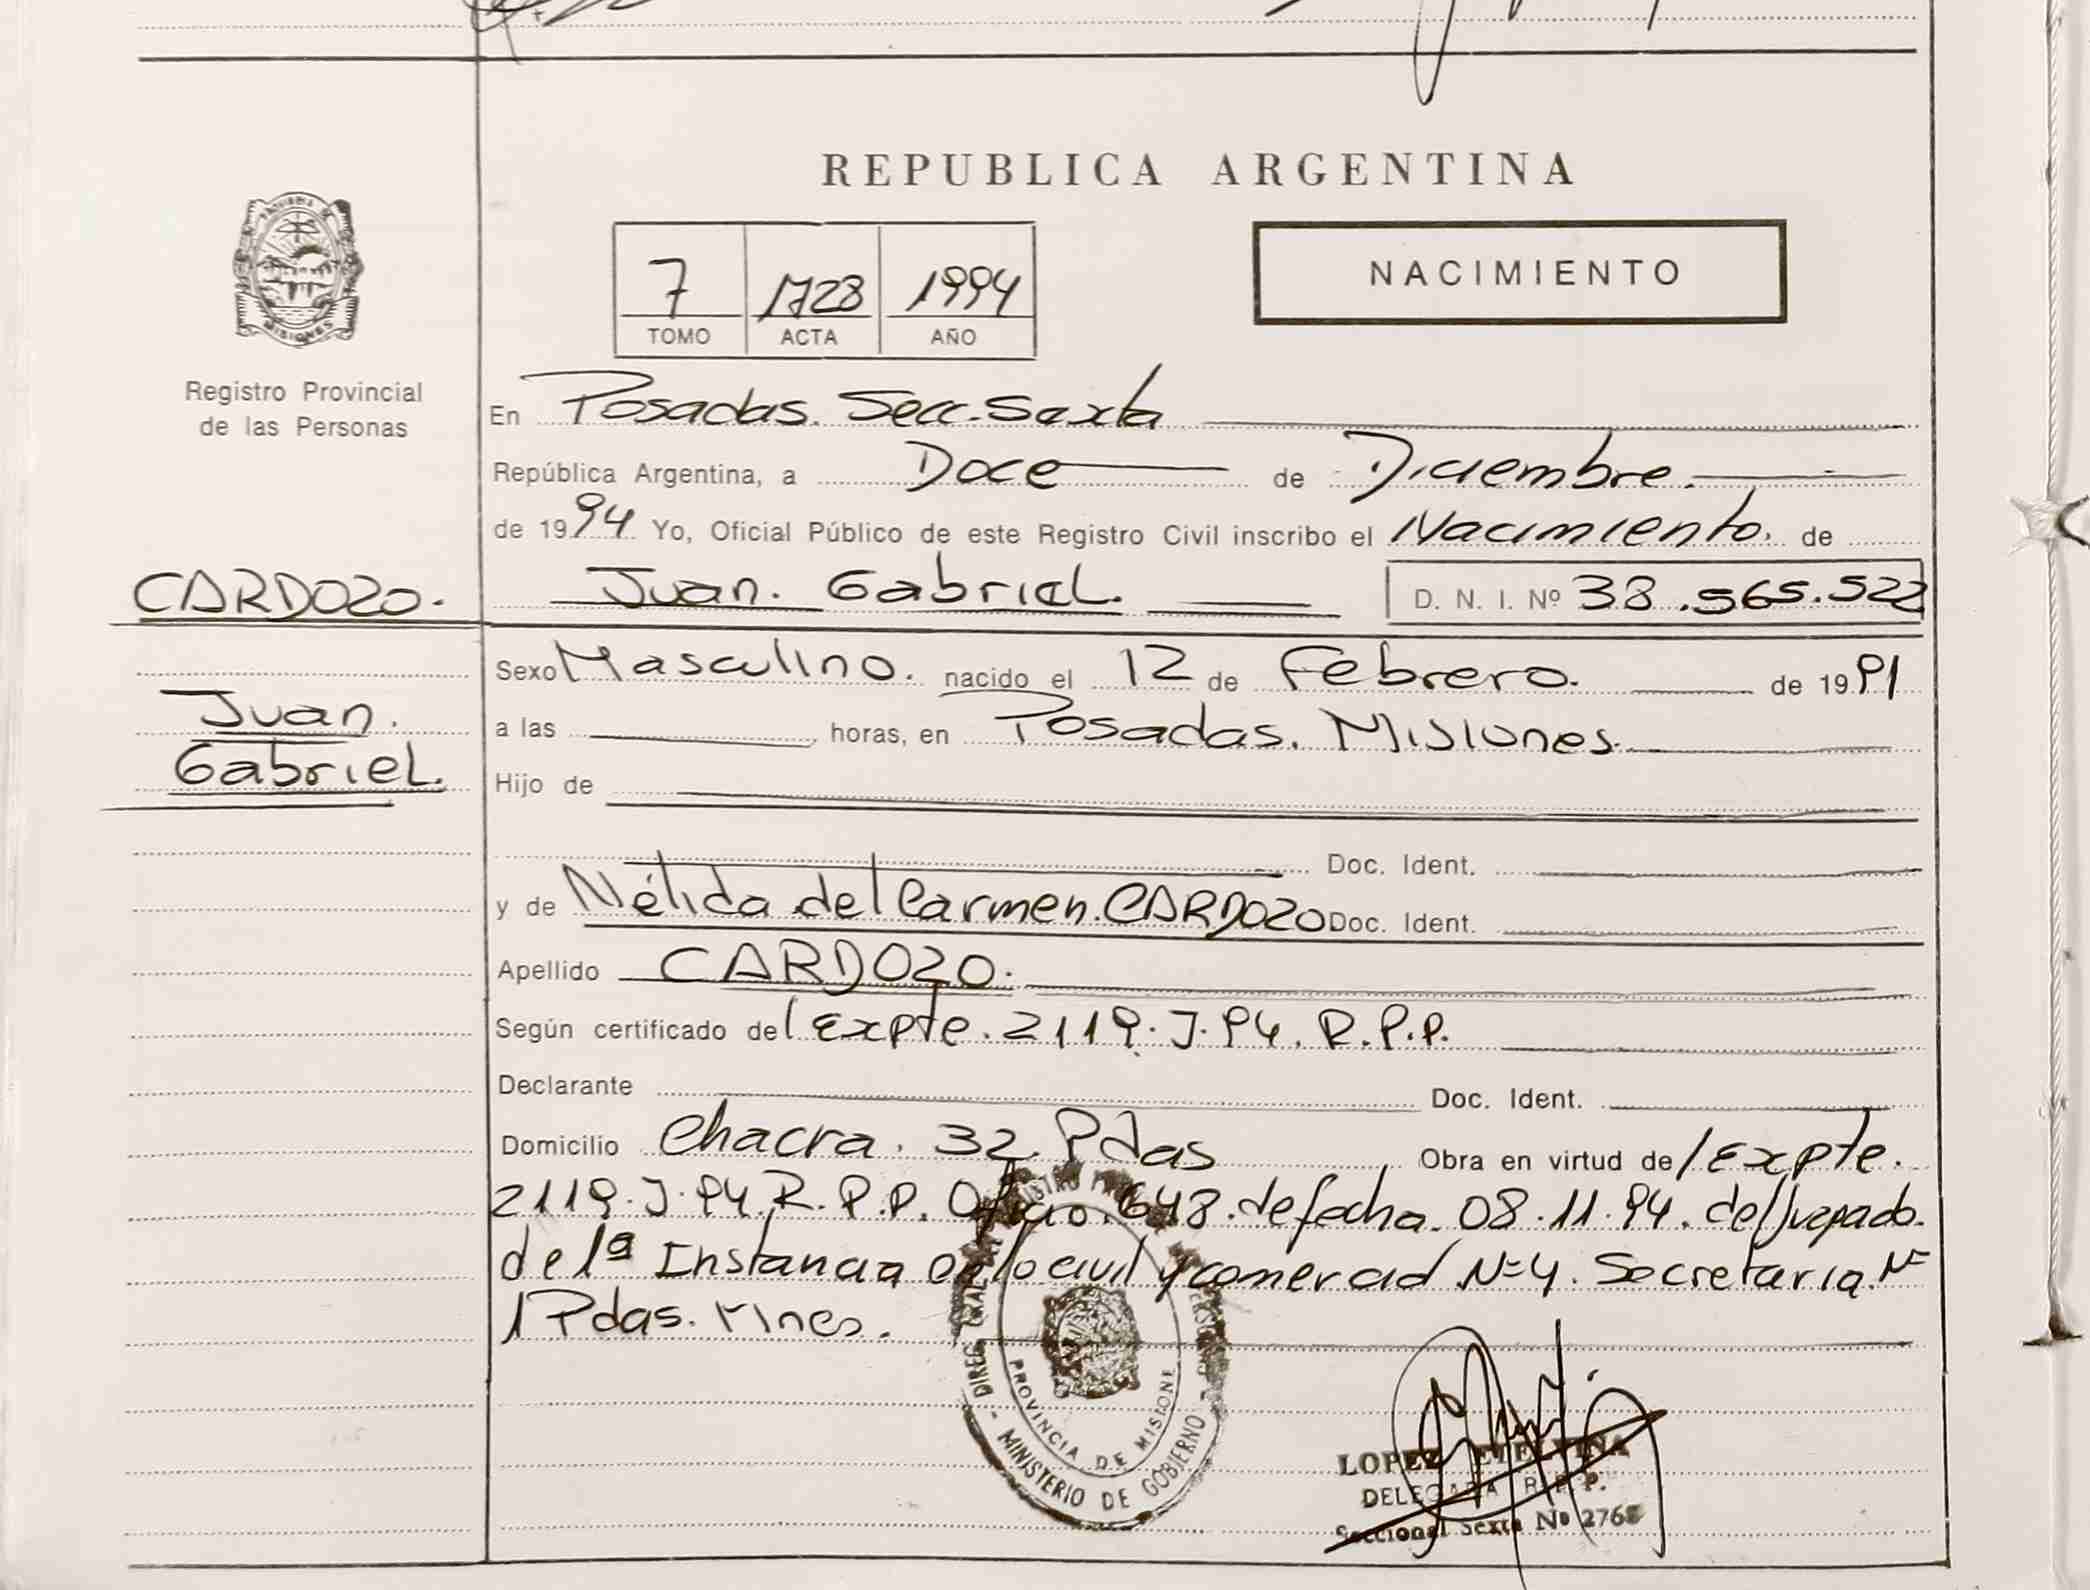 REPUBLICA ARGENTINA
NACIMIENTO
7 1728 1994
TOMO ACTA AÑO
MISIONES
Registro Provincial
de las Personas
En Posadas. Secc. Sexta
República Argentina, a Doce de Diciembre.
de 1994 Yo, Oficial Público de este Registro Civil inscribo el Nacimiento. de
CARDOZO.
Juan. Gabriel. D. N. I. Nº 38.565.522
Sexo Masculino. nacido el 12 de Febrero. de 1991
Juan.
Gabriel.
a las horas, en Posadas. Misiones.
Hijo de
Doc. Ident.
y de Nélida del Carmen. CARDOZO Doc. Ident.
Apellido CARDOZO.
Según certificado del Expte. 2119. J. 94. R.P.P.
Declarante Doc. Ident.
Domicilio Chacra. 32. Pdas Obra en virtud de/Expte.
2119. J. 94. R. P. P. Oficio. 648. de fecha. 08.11.94. del Juzgado.
de 1ª Instancia en lo civil y comercial Nº 4. Secretaria. Nº
1 Pdas. Mnes.
PROVINCIA DE MISIONE
- MINISTERIO DE GOBIERNO -
LOPEZ ETELVINA
DELEGADA R. P. P.
Seccional Sexta Nº 2768